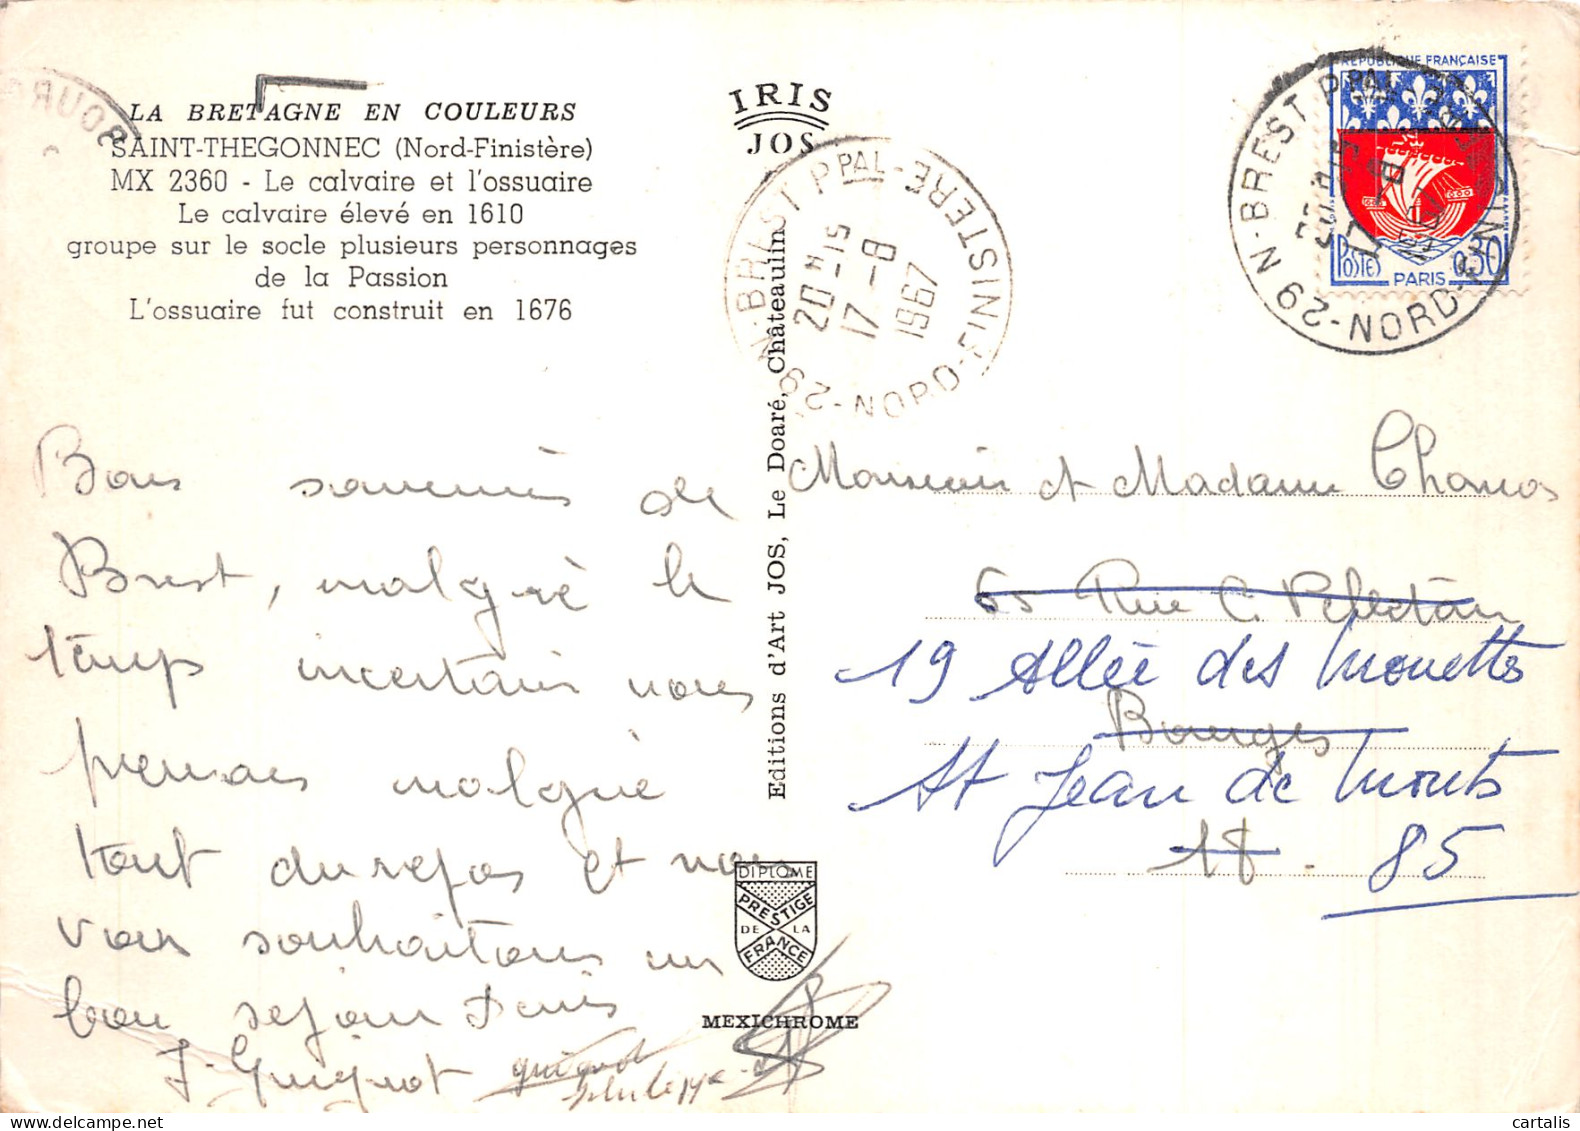 LA BRETAGNE EN COULEURS
SAINT-THEGONNEC (Nord-Finistère)
MX 2360 - Le calvaire et l'ossuaire
Le calvaire élevé en 1610
groupe sur le socle plusieurs personnages
de la Passion
L'ossuaire fut construit en 1676
IRIS
JOS
29 N-BREST PPAL-
20 H 15
17 - 8
1967
NORD-FINISTERE
RÉPUBLIQUE FRANÇAISE
POSTES
PARIS
0,30
29 N-BREST PPAL-
20 H 15
17 - 8
NORD-FINISTERE
BOUR
Bons souvenirs de
Brest, malgré le
temps incertain nous
prenons malgré
tout du repos et nous
vous souhaitons un
bon séjour
J. Guignot
Editions d'Art JOS, Le Doaré, Châteaulin
DIPLOME
PRESTIGE
DE LA
FRANCE
MEXICHROME
Monsieur et Madame
65 Rue C. Pelletan
19 Allée des Mouettes
Bourges
St Jean de Monts
18. 85
cartalis